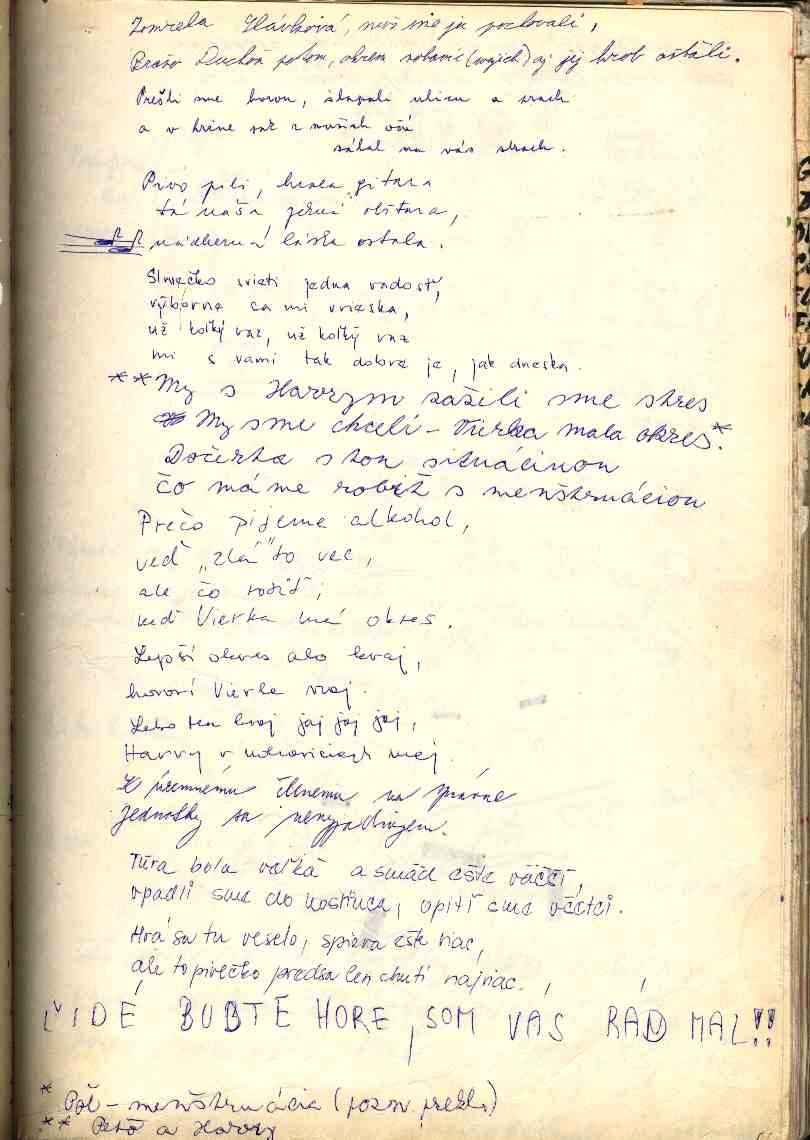 Zomrela Hlávková, než sme ju poslovali,
Braňo Duchoň potom, okrem (mojich) aj jej hrob ostáli.
Prešli sme horou, šlapali ulicu a srach
a v hrine saž z našich očú
sálal na vás strach.
Pivo pili, hrala gitara
tá naša jediná oltára,
nádherná láska ostala.
Slniečko svieti jedna radosť,
výborne sa mi vrieska,
už koľký raz, už koľký raz
mi s vami tak dobre je, jak dneska.
** My s Harrym zažili sme stres
My sme chceli - Vierka mala okres*.
Dočerta s tou situáciou
čo máme robiť s menštruáciou
Prečo pijeme alkohol,
veď „zlá" to vec,
ale čo robiť,
keď Vierka má okres.
Lepší okres ako kraj,
hovorí Vierka vraj.
Lebo ten kraj jaj jaj jaj,
Harry v nohaviciach maj.
K členemu na správne
jednotky sa nevyjadrujem.
Túra bola veľká a smäd ešte väčší,
vpadli sme do hostinca, opití sme všetci.
Hrá sa tu veselo, spieva ešte viac,
ale to pivečko predsa len chutí najviac.
ĽIDÉ BUĎTE HORE, SOM VÁS RÁD MAL!!
* Poš - menštruácia (pozn. prekl.)
** Peťo a Harry